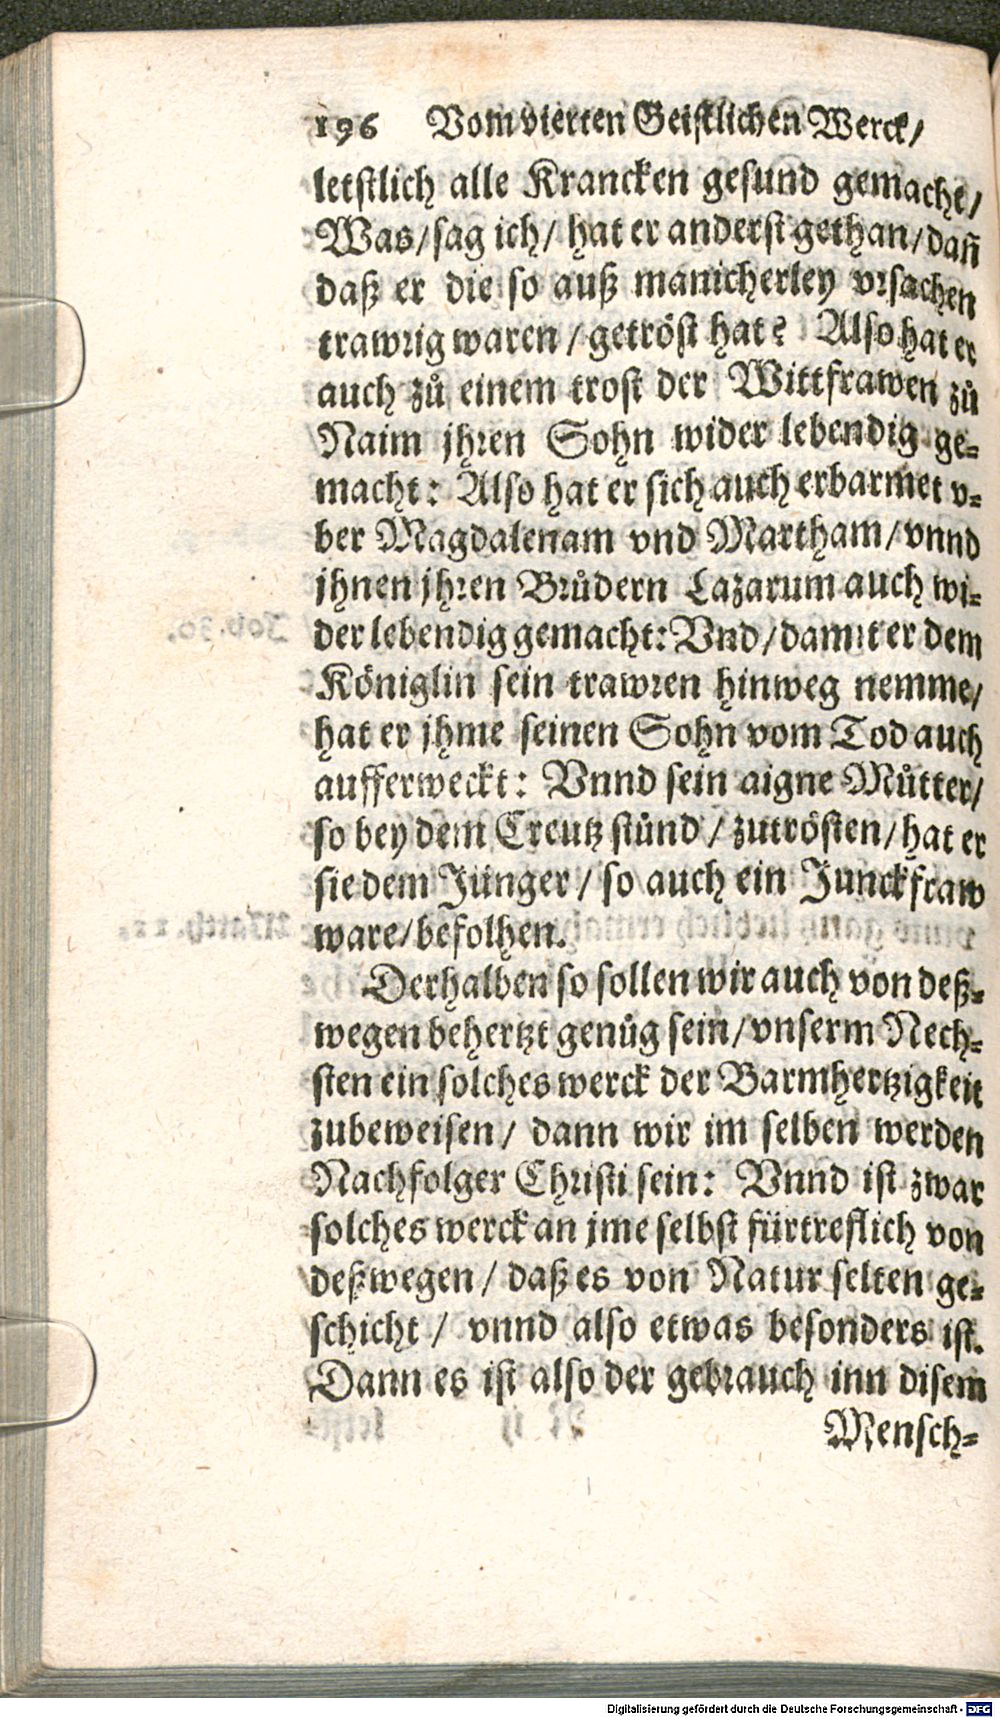 196 Vom vierten Geistlichen Werck/
letstlich alle Krancken gesund gemacht/
Was/sag ich/ hat er anderst gethan/dañ
daß er die so auß manicherley vrsachen
trawrig waren /getröst hat? Also hat er
auch zů einem trost der Wittfrawen zů
Naim jhren Sohn wider lebendig ge=
macht: Also hat er sich auch erbarmet v=
ber Magdalenam vnd Martham/vnnd
jhnen jhren Brůdern Lazarum auch wi=
der lebendig gemacht: Vnd/damit er dem
Königlin sein trawren hinweg nemme/
hat er jhme seinen Sohn vom Tod auch
aufferweckt: Vnnd sein aigne Můtter/
so bey dem Creutz stůnd/ zutrösten/hat er
sie dem Jünger/ so auch ein Junckfraw
ware/befolhen.
Derhalben so sollen wir auch von deß=
wegen behertzt genůg sein/vnserm Nech=
sten ein solches werck der Barmhertzigkeit
zubeweisen/ dann wir im selben werden
Nachfolger Christi sein: Vnnd ist zwar
solches werck an jme selbst fürtreflich von
deßwegen/ daß es von Natur selten ge=
schicht/ vnnd also etwas besonders ist.
Dann es ist also der gebrauch inn disem
Mensch=
Digitalisierung gefördert durch die Deutsche Forschungsgemeinschaft - DFG